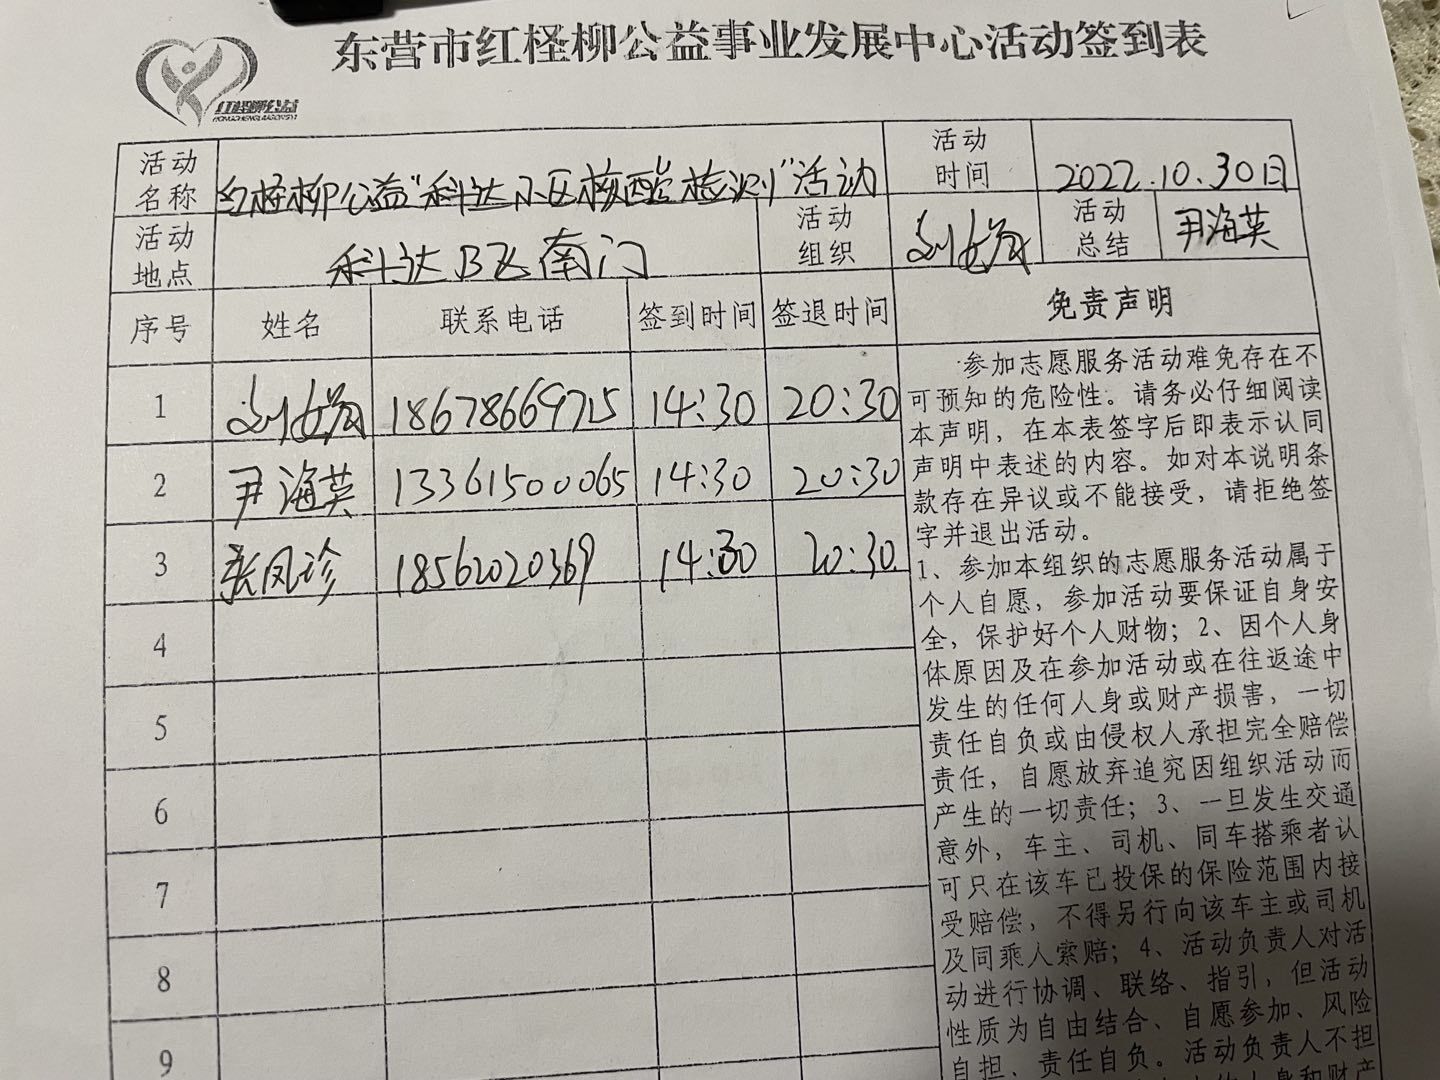 东营市红柽柳公益事业发展中心活动签到表
红柽柳公益
活动名称 红柽柳公益“科达小区核酸检测”活动 活动时间 2022.10.30日
活动地点 科达B区南门 活动组织 活动总结 尹海英
序号 姓名 联系电话 签到时间 签退时间 免责声明
1 18678669725 14:30 20:30
2 尹海英 13361500065 14:30 20:30
3 张凤珍 18562020369 14:30 20:30
4
5
6
7
8
9
参加志愿服务活动难免存在不
可预知的危险性。请务必仔细阅读
本声明，在本表签字后即表示认同
声明中表述的内容。如对本说明条
款存在异议或不能接受，请拒绝签
字并退出活动。
1、参加本组织的志愿服务活动属于
个人自愿，参加活动要保证自身安
全，保护好个人财物；2、因个人身
体原因及在参加活动或在往返途中
发生的任何人身或财产损害，一切
责任自负或由侵权人承担完全赔偿
责任，自愿放弃追究因组织活动而
产生的一切责任；3、一旦发生交通
意外，车主、司机、同车搭乘者认
可只在该车已投保的保险范围内接
受赔偿，不得另行向该车主或司机
及同乘人索赔；4、活动负责人对活
动进行协调、联络、指引，但活动
性质为自由结合、自愿参加、风险
自担、责任自负。活动负责人不担